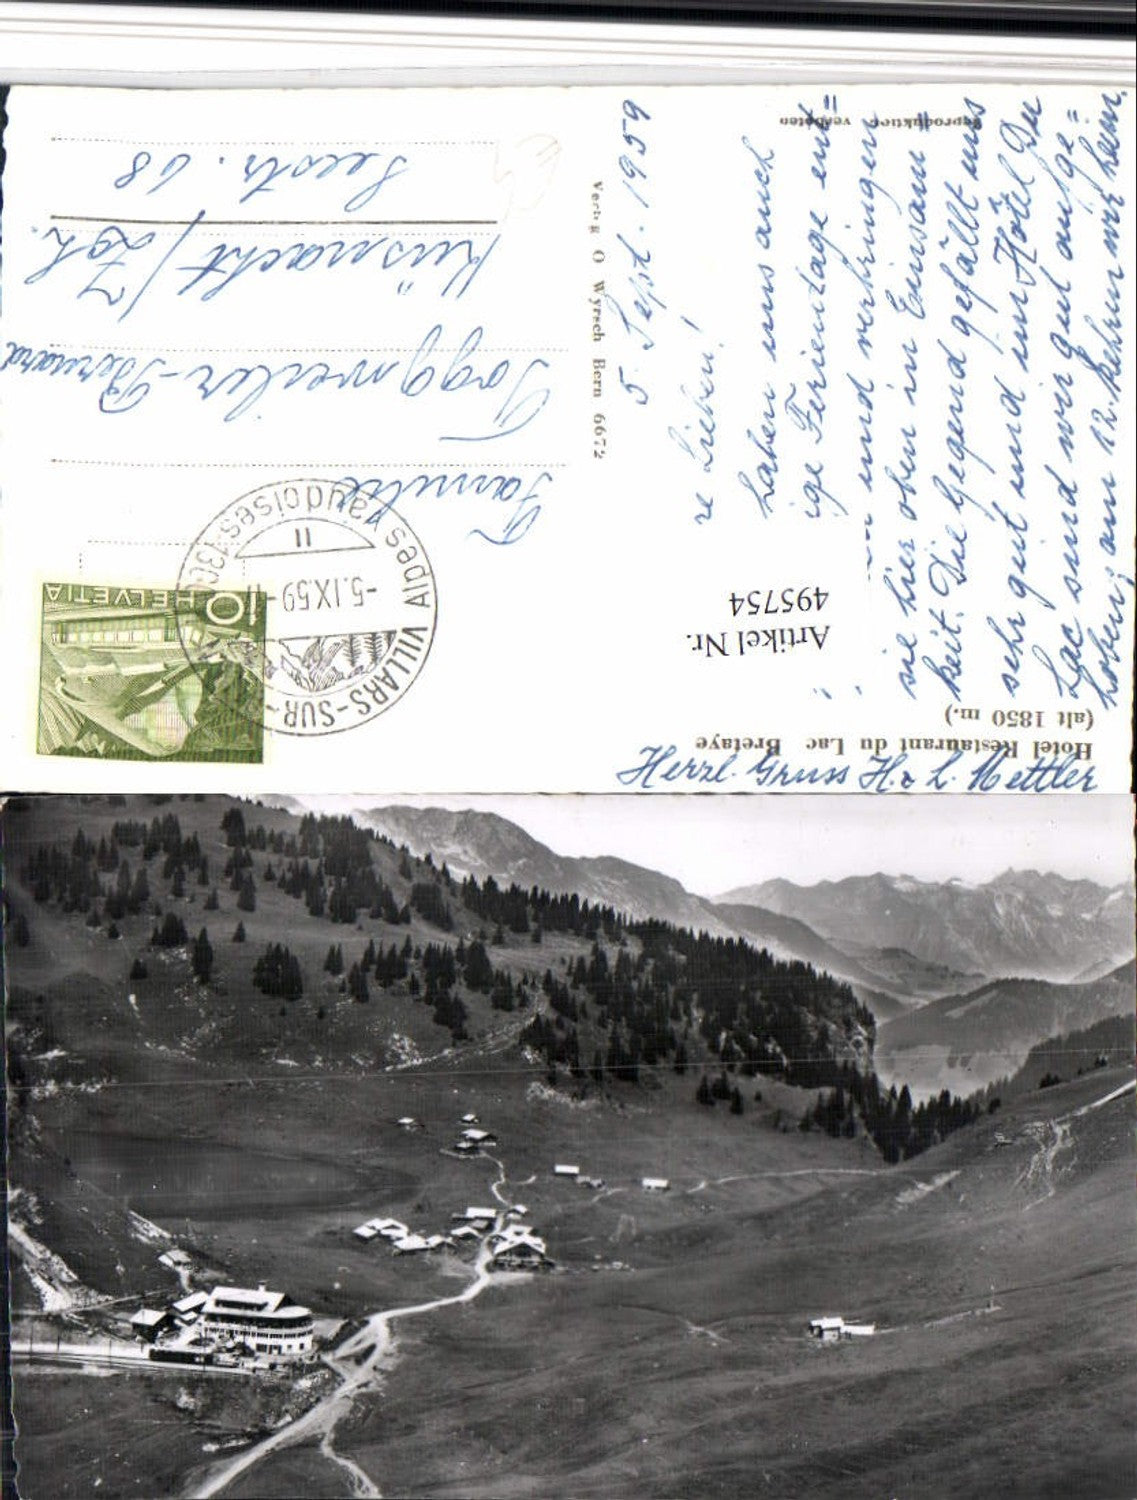 Hotel Restaurant du Lac Bretaye
(alt 1850 m.)
Artikel Nr.
495754
5. Sept. 1959
re Lieben!
haben uns auch
ige Ferientage ent=
und verbringen
sie hier oben in Einsam=
keit. Die Gegend gefällt uns
sehr gut und im Hôtel Du
Lac sind wir gut aufge=
hoben, am 12. kehren wir heim.
Herzl. Gruss H. & L. Mettler
Reproduktion verboten
Verlag O Wyrsch Bern 6672
VILLARS-SUR-
Alpes Vaudoises
-5.IX.59-
11
10 HELVETIA
Familie
Toggweiler-Bernard
Küsnacht/Zch.
Seestr. 68